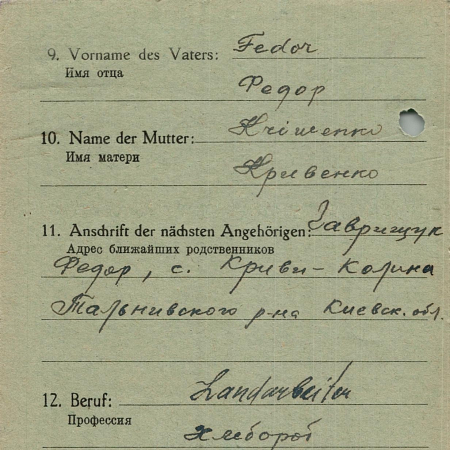 9. Vorname des Vaters: Fedor
Имя отца
Федор
10. Name der Mutter:
Имя матери
Кривенко
11. Anschrift der nächsten Angehörigen: Гаврищук
Адрес ближайших родственников
Федор, с. Криви-Колина
Тальнивского р-на Киевск. обл.
12. Beruf: Landarbeiter
Профессия
хлебороб